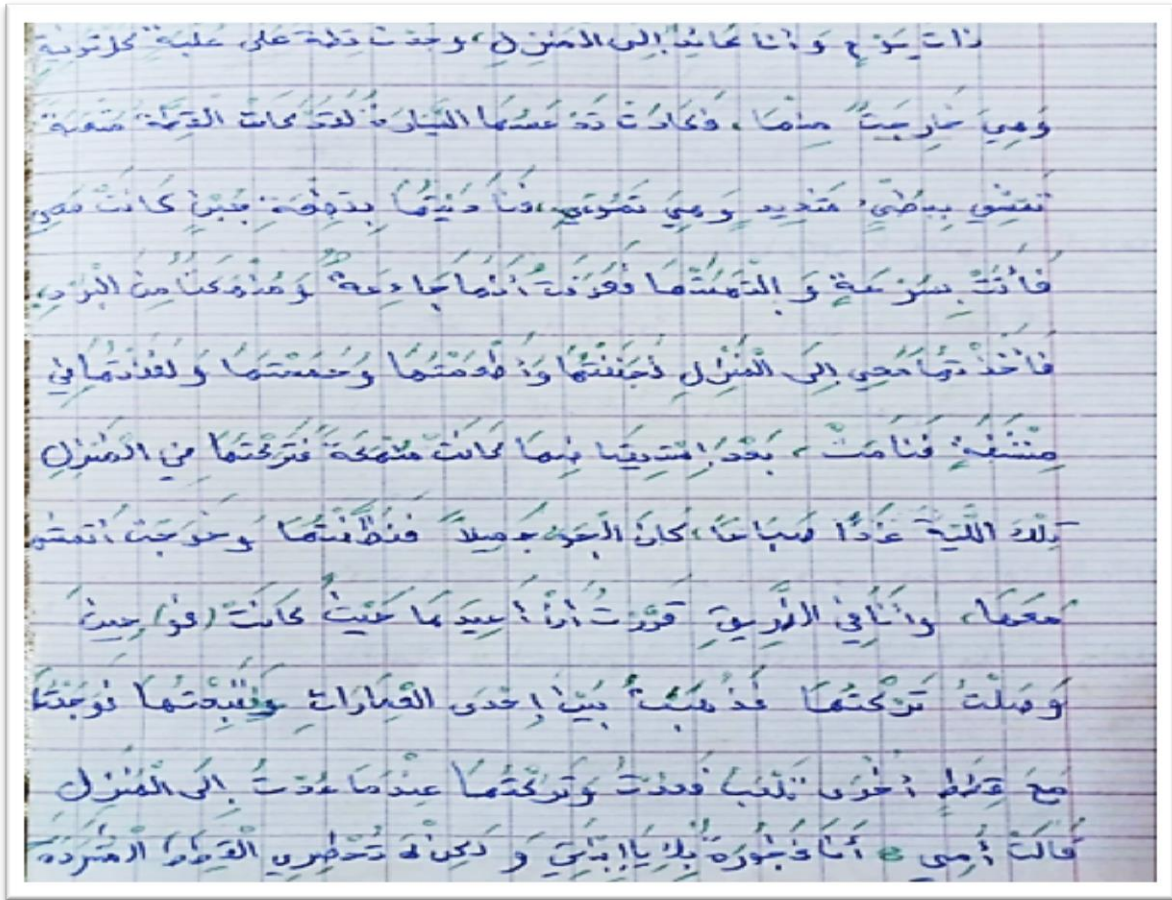 ذات يَوْمٍ وَ أنا عَائِدٌ إِلى المَنْزِلِ، وَجَدْتُ قِطة على عُلْبَةٍ كرْتونية
وَ هِيَ خَارِجَتٌ مِنْهَا، فَكَادَتْ تَدْعَسُهَا السَّيَارَةُ لَقَدْ كانَتْ القِطَّة مُتْعبَة
تَمْشِي بِبطْيءٍ شَدِيدٍ وَ هِيَ تَمُوء، فَنَادَيْتُهَا بِقِطْعَةِ جُبْنٍ كَانَتْ مَعِي
فَأَتَتْ بِسُرْعَةٍ وَ الْتَهَمَتْهَا فَعَرَفْتُ أَنَهَا جَاءِعَةٌ وَ مُنْهَكَتٌ مِنَ الْبَرْدِ،
فَأَخَذْتُهَا مَعِي إِلَى الْمَنْزِلِ وَأَطْعَمْتُهَا وَحَمَمْتُهَا وَ لَفَفْتُهَا في
مِنْشَفَةٍ فَنَامَتْ، بَعْدَ كَانَتْ فَتَرَكْتُهَا فِي الْمَنْزِلِ
تِلْكَ اللَّيْلَةَ غَدًا صَبَاحًا، كَانَ الْجَوُ جَمِيلاً فَنَظَّفْتُهَا وَ خَرَجَتُ أتمشى
مَعَهَا، وَ أَنَا فِي الطَّرِيقِ قَرَّرْتُ أَنْ أُعِيدَهَا حَيْثُ كَانَتْ حِينَ
وَصَلْتُ تَرَكْتُهَا فَذَهَبَتْ بَيْنَ إِحْدَى الْعِمَارَاتِ وَتَبِعْتُهَا فَوَجَدْتُهَا
مَعَ قِطَطٍ أُخْرَى تَلْعَبُ فَعُدْتُ وَتَرَكْتُهَا عِنْدَمَا عُدْتُ إِلَى الْمَنْزِلِ
قَالَتْ أُمِي أَنَا فَخُورَةٌ بِكِ يَا إِبْنَتِي وَ لَكِنْ لاَ تُحْظِرِي الْقِطَطَ الْمُشَرَدَة